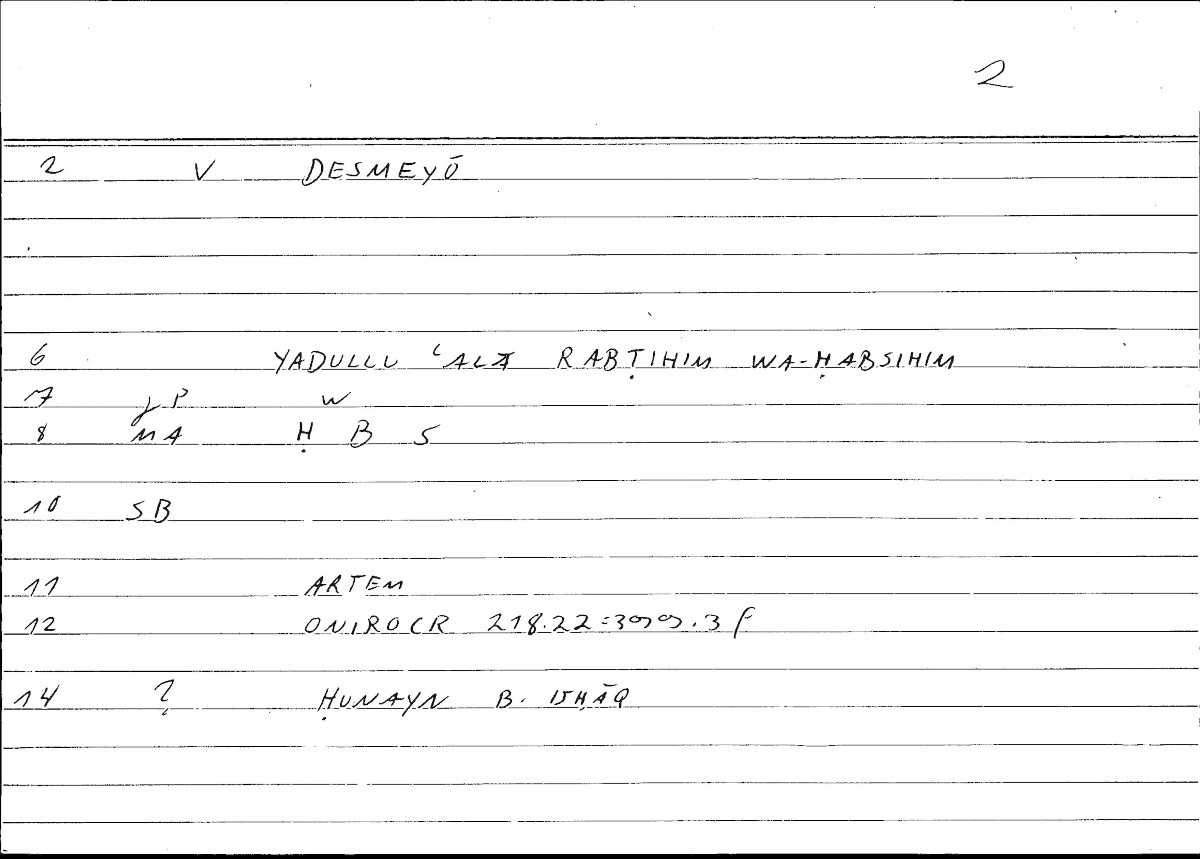 2
2 V DESMEYŌ
6 YADULLU ʿALĀ RABṬIHIM WA-ḤABSIHIM
7 P W
8 MA Ḥ B S
10 SB
11 ARTEM
12 ONIROCR 218.22 = 399.3 f
14 ? ḤUNAYN B. ISḤĀQ